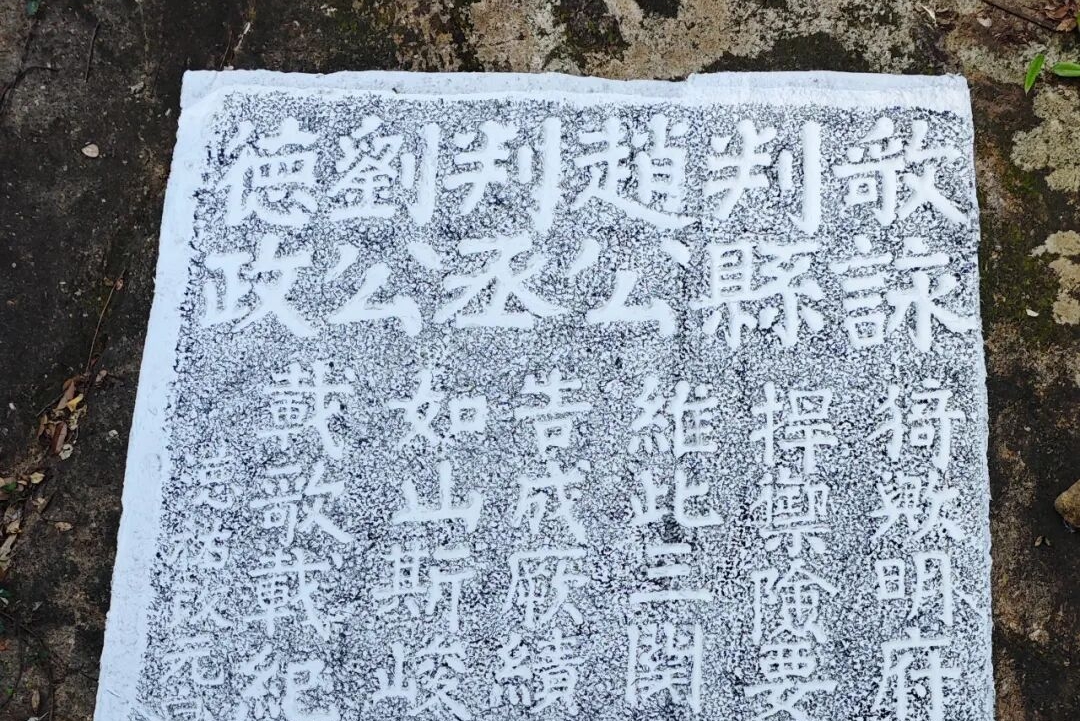 歌詠
判縣
趙公
判丞
劉公
德政
猗歟明府
捍禦險要
維此三関
告成厥績
如山斯峻
載歌載紀
改元